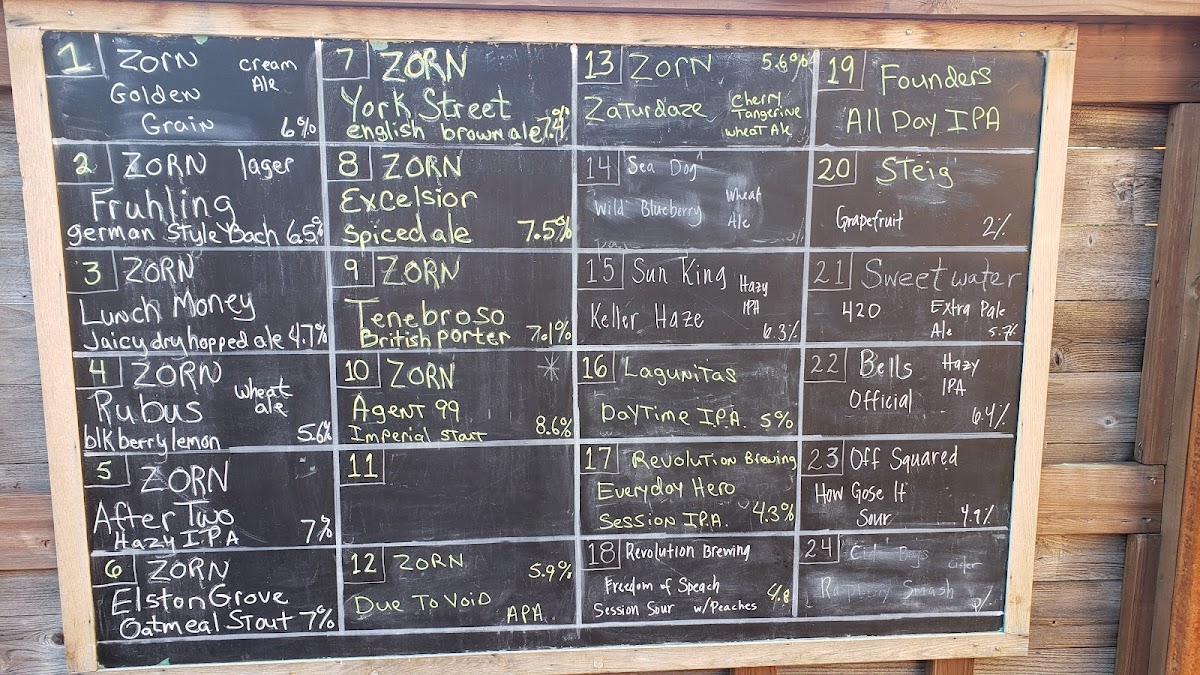 1 Zorn cream
Ale
Golden
Grain 6%
2 ZORN lager
Fruhling
german Style Bach 6.5%
3 ZORN
Lunch Money
Juicy dry hopped ale 4.7%
4 ZORN wheat
ale
Rubus
blk berry lemon 5.6%
5 ZORN
After Two
Hazy I.P.A 7%
6 ZORN
Elston Grove
Oatmeal Stout 7%
7 ZORN
York Street
english brown ale 7.4%
8 ZORN
Excelsior
Spiced ale 7.5%
9 ZORN
Tenebroso
British porter 7.1%
10 ZORN
Agent 99
Imperial Stout 8.6%
11
12 ZORN 5.9%
Due To Void
APA.
13 Zorn 5.6%
Zaturdaze Cherry
Tangerine
Wheat Ale
14 Sea Dog
Wild Blueberry Wheat
Ale
15 Sun King Hazy
IPA
Keller Haze 6.3%
16 Lagunitas
DayTime I.P.A. 5%
17 Revolution Brewing
Everyday Hero
Session I.P.A. 4.3%
18 Revolution Brewing
Freedom of Speach 4.8
Session Sour w/Peaches
19 Founders
All Day IPA
20 Steig
Grapefruit 2%
21 Sweetwater
420 Extra Pale
Ale 5.7%
22 Bells Hazy
IPA
Official 6.4%
23 Off Squared
How Gose It
Sour 4.9%
24 Cider
Smash %